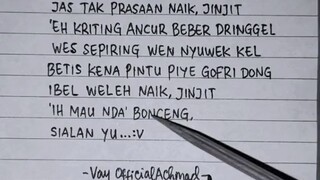 JAS TAK PRASAAN NAIK, JINJIT
'EH KRITING ANCUR BEBER DRINGGEL
WES SEPIRING WEN NYUWEK KEL
BETIS KENA PINTU PIYE GOFRI DONG
IBEL WELEH NAIK, JINJIT
'IH MAU NDA' BONCENG,
SIALAN YU...:V
-Vay OfficialAchmad-